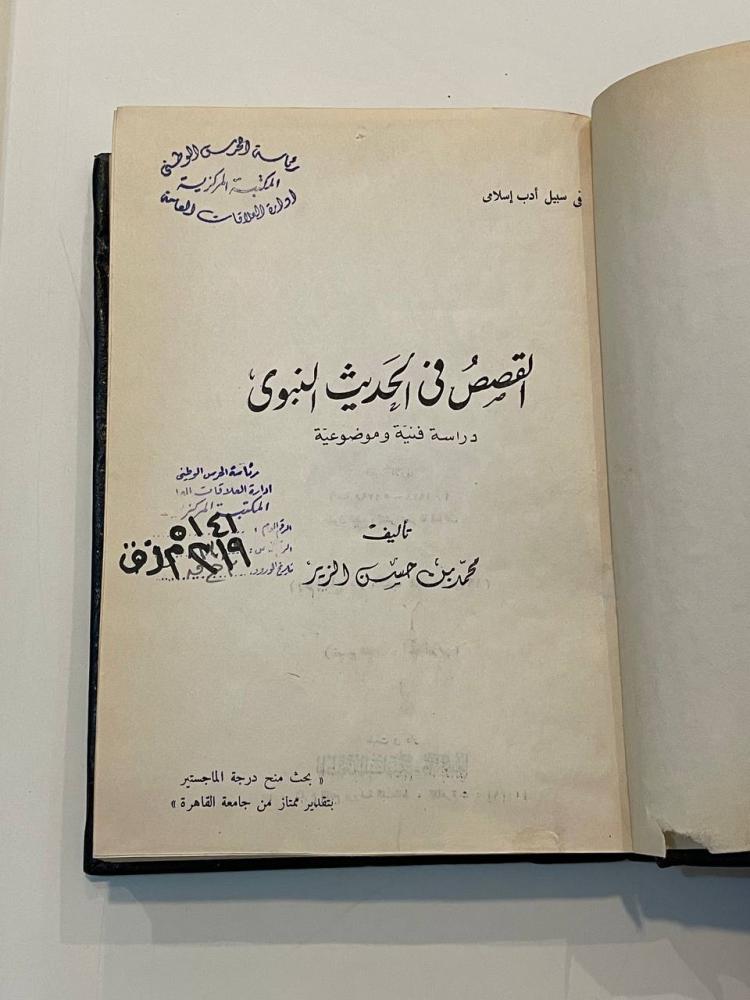 رئاسة الحرس الوطني
المكتبة المركزية
ادارة العلاقات العامة
فى سبيل أدب إسلامى
القصصُ فى الحَديث النبوى
دراسة فنيّة وموضوعيّة
رئاسة الحرس الوطنى
ادارة العلاقات
المكتبة المركز
الرقم العام :
٥١٤١
تاريخ الورود
تأليف
محمد بن حسن الزير
« بحث منح درجة الماجستير
بتقدير ممتاز من جامعة القاهرة »